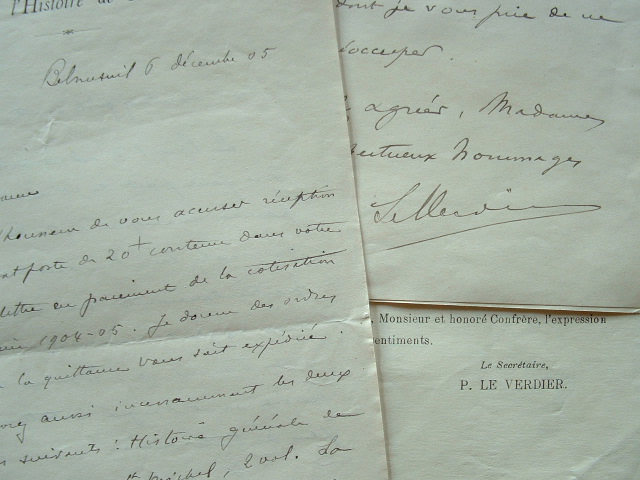 l'Histoire de
Belmesnil 6 décembre 05
l'honneur de vous accuser réception
poste de 20 contenu dans votre
lettre en paiement de la cotisation
1904-05. Je donne des ordres
la quittance vous soit expédiée.
aussi incessamment les deux
suivants : Histoire générale de
2 vol. La
dont je vous prie de ne
agréer, Madame,
hommages
Le Verdier
Monsieur et honoré Confrère, l'expression
entiments.
Le Secrétaire,
P. LE VERDIER.